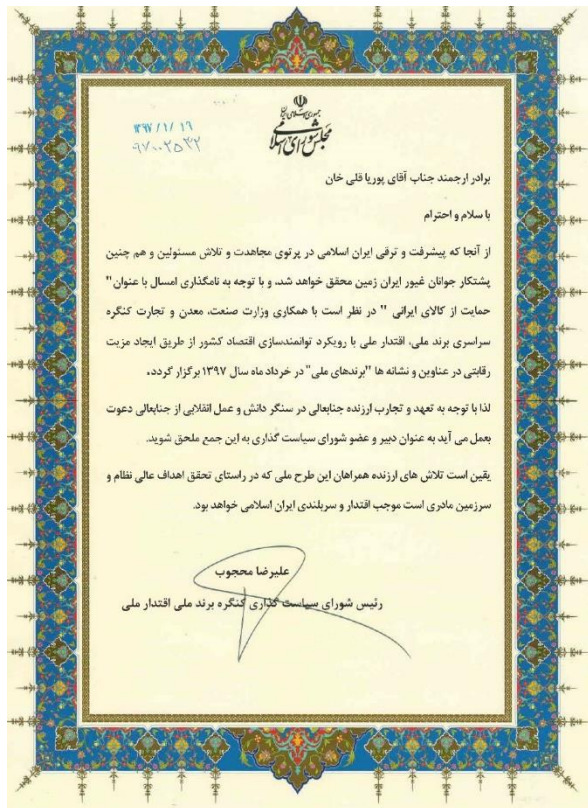 جمهوری اسلامی ایران
مجلس شورای اسلامی
۱۳۹۷/۱/۱۹
برادر ارجمند جناب آقای پوریا قلی خان
با سلام و احترام
از آنجا که پیشرفت و ترقی ایران اسلامی در پرتوی مجاهدت و تلاش مسئولین و هم چنین
پشتکار جوانان غیور ایران زمین محقق خواهد شد، و با توجه به نامگذاری امسال با عنوان "
حمایت از کالای ایرانی " در نظر است با همکاری وزارت صنعت، معدن و تجارت کنگره
سراسری برند ملی، اقتدار ملی با رویکرد توانمندسازی اقتصاد کشور از طریق ایجاد مزیت
رقابتی در عناوین و نشانه ها "برندهای ملی" در خرداد ماه سال ۱۳۹۷ برگزار گردد.
لذا با توجه به تعهد و تجارب ارزنده جنابعالی در سنگر دانش و عمل انقلابی از جنابعالی دعوت
بعمل می آید به عنوان دبیر و عضو شورای سیاست گذاری به این جمع ملحق شوید.
یقین است تلاش های ارزنده همراهان این طرح ملی که در راستای تحقق اهداف عالی نظام و
سرزمین مادری است موجب اقتدار و سربلندی ایران اسلامی خواهد بود.
علیرضا محجوب
رئیس شورای سیاست گذاری کنگره برند ملی اقتدار ملی